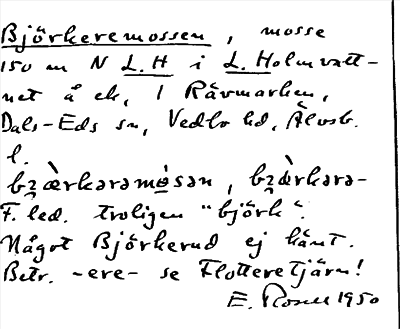 Björkeremossen, mosse
150 m N L. H i L. Holmvatt-
net å ek, i Rävmarken,
Dals-Eds sn, Vedbo hd, Älvsb.
l.
bʒ̯ærkərəmósən, bʒ̯ærkərə-
F. led. troligen "björk".
Något Björkerud ej känt.
Betr. -ere- se Flotteretjärn!
1950